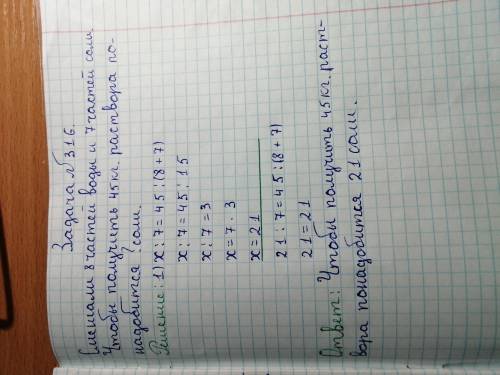 Задача №316.
Смешали 8 частей воды и 7 частей соли
Чтобы получить 45кг. раствора по-
надобится соли.
Решение: 1) x : 7 = 45 : (8 + 7)
x : 7 = 45 : 15
x : 7 = 3
x = 7 · 3
x = 21
21 : 7 = 45 : (8 + 7)
21 = 21
Ответ: Чтобы получить 45кг. раст-
вора понадобится 21 соли.